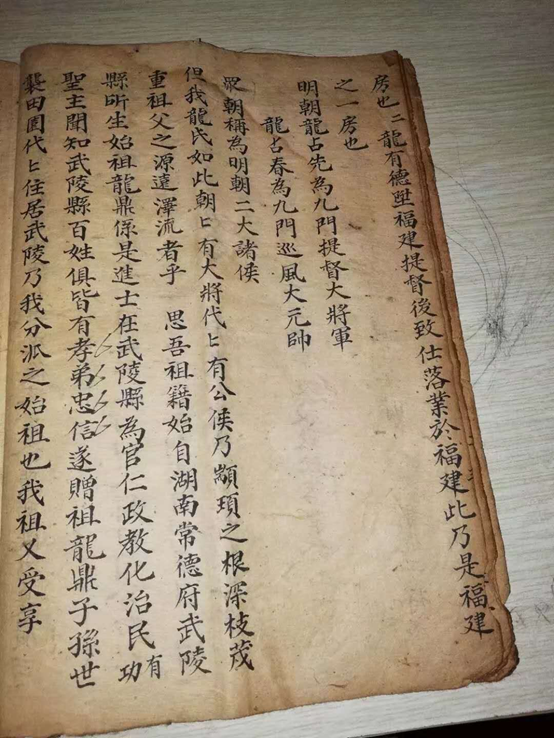 房也二龍有德陞福建提督後致仕落業於福建此乃是福建
之一房也
明朝龍占先為九門提督大將軍
龍占春為九門巡風大元帥
眾朝稱為明朝二大諸侯
但我龍氏如此朝〻有大將代〻有公侯乃顓頊之根深枝茂
重祖父之源遠澤流者乎 思吾祖籍始自湖南常德府武陵
縣所生始祖龍鼎係是進士在武陵縣為官仁政教化治民有功
聖主聞知武陵縣百姓俱皆有孝弟忠信遂贈祖龍鼎子孫世
襲田園代〻住居武陵乃我分派之始祖也我祖又受享